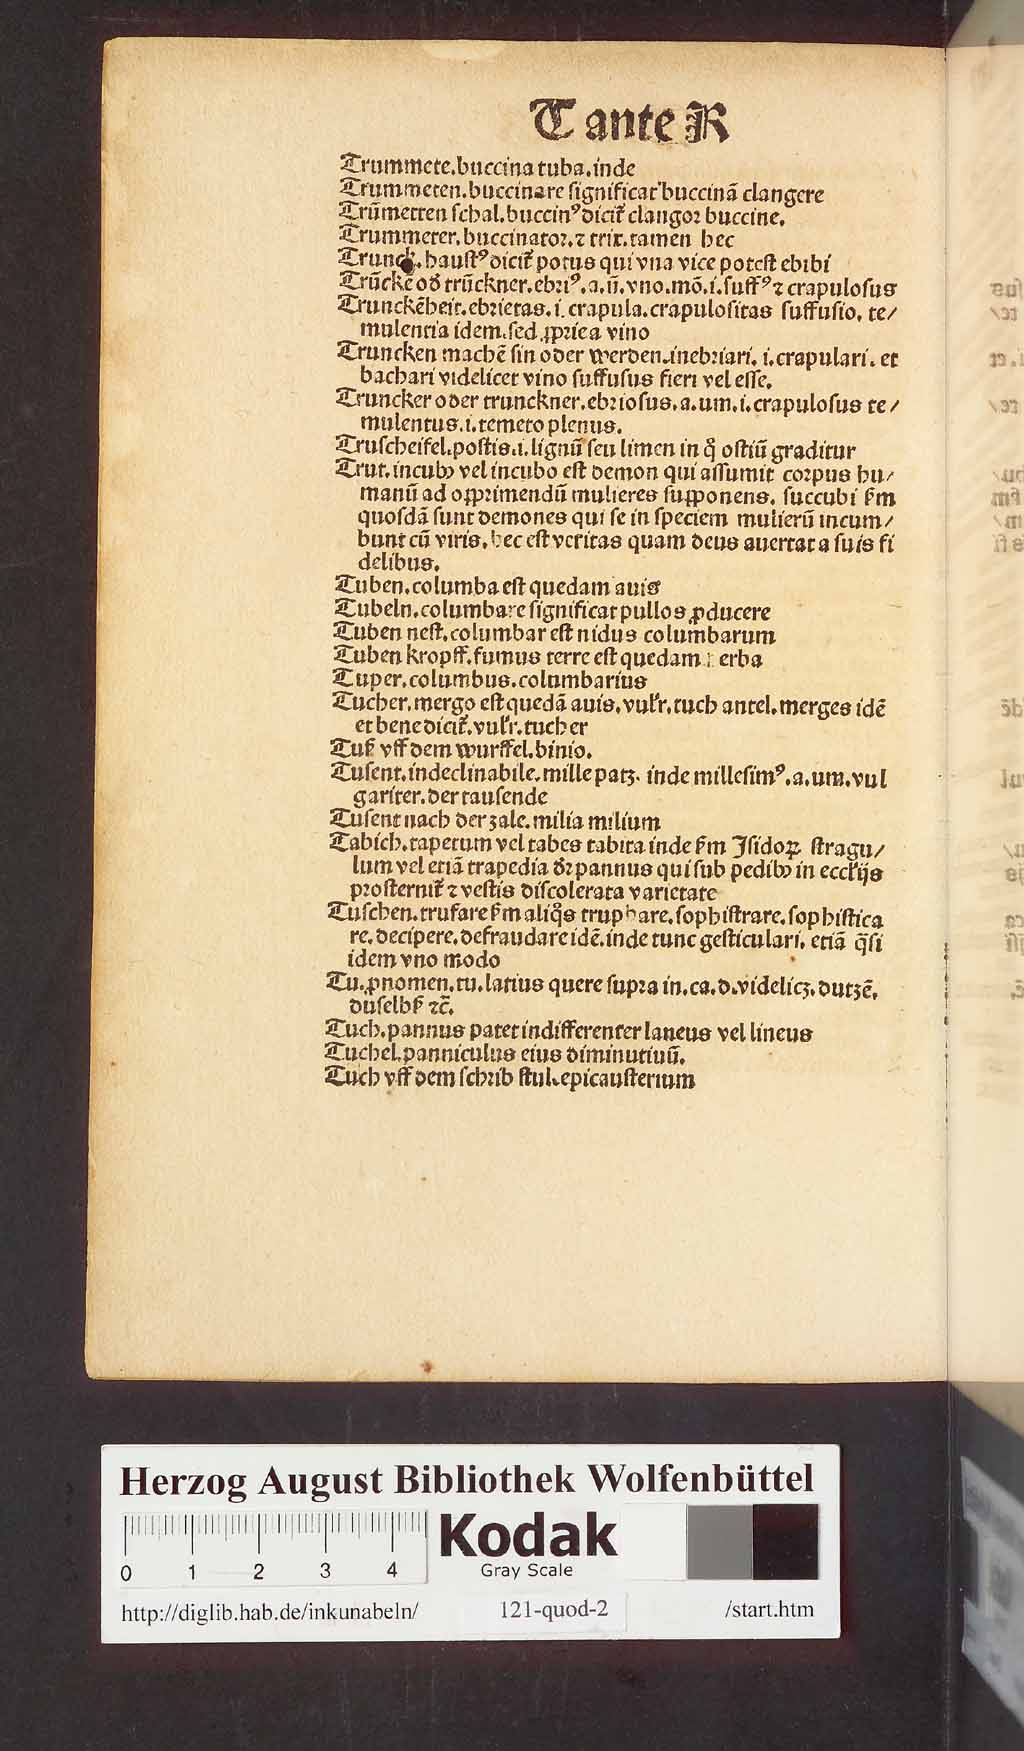 T ante R
Trummete.buccina tuba.inde
Trummeten.buccinare significat buccinā clangere
Trūmetten schal.buccinꝰ dicit̄ clangor buccine.
Trummeter.buccinator.⁊ trix.tamen hec
Trunck.haustꝰ dicit̄ potus qui vna vice potest ebibi
Trūckē od̛ trūckner.ebriꝰ.a.ū.vno.mō.i.suffꝰ ⁊ crapulosus
Trunckēheit.ebrietas.i.crapula.crapulositas suffusio.te/
mulentia idem.sed ꝓprie a vino
Truncken machē sin oder werden.inebriari.i.crapulari.et
bachari videlicet vino suffusus fieri vel esse.
Truncker oder trunckner.ebriosus.a.um.i.crapulosus te/
mulentus.i.temeto plenus.
Truscheifel.postis.i.lignū seu limen in q̊ ostiū graditur
Trut.incubꝰ vel incubo est demon qui assumit corpus hu/
manū ad opprimendū mulieres supponens.succubi ẜm
quosdā sunt demones qui se in speciem mulierū incum/
bunt cū viris.hec est veritas quam deus auertat a suis fi
delibus.
Tuben.columba est quedam auis
Tubeln.columbare significat pullos ꝓducere
Tuben nest.columbar est nidus columbarum
Tuben kropff.fumus terre est quedam herba
Tuper.columbus.columbarius
Tucher.mergo est quedā auis.vulr̄.tuch antel.merges idē
et bene dicit̄.vulr̄.tucher
Tuß vff dem wurffel.binio.
Tusent.indeclinabile.mille patꝫ.inde millesimꝰ.a.um.vul
gariter.der tausende
Tusent nach der zale.milia milium
Tabich.tapetum vel tabes tabita inde ẜm Jsidoꝝ stragu/
lum vel etiā trapedia dr̄ pannus qui sub pedibꝰ in eccl̄ijs
prosternit̄ ⁊ vestis discolerata varietate
Tuschen.trufare ẜm aliq̊s truphare.sophistrare.sophistica
re.decipere.defraudare idē.inde tunc gesticulari.etiā q̄si
idem vno modo
Tu.ꝓnomen.tu.latius quere supra in.ca.d.videlicꝫ.dutzē.
duselbß ⁊c̄.
Tuch.pannus patet indifferenter laneus vel lineus
Tuchel.panniculus eius diminutiuū.
Tuch vff dem schrib stul.epicausterium
Herzog August Bibliothek Wolfenbüttel
0 1 2 3 4
Kodak
Gray Scale
http://diglib.hab.de/inkunabeln/ 121-quod-2 /start.htm